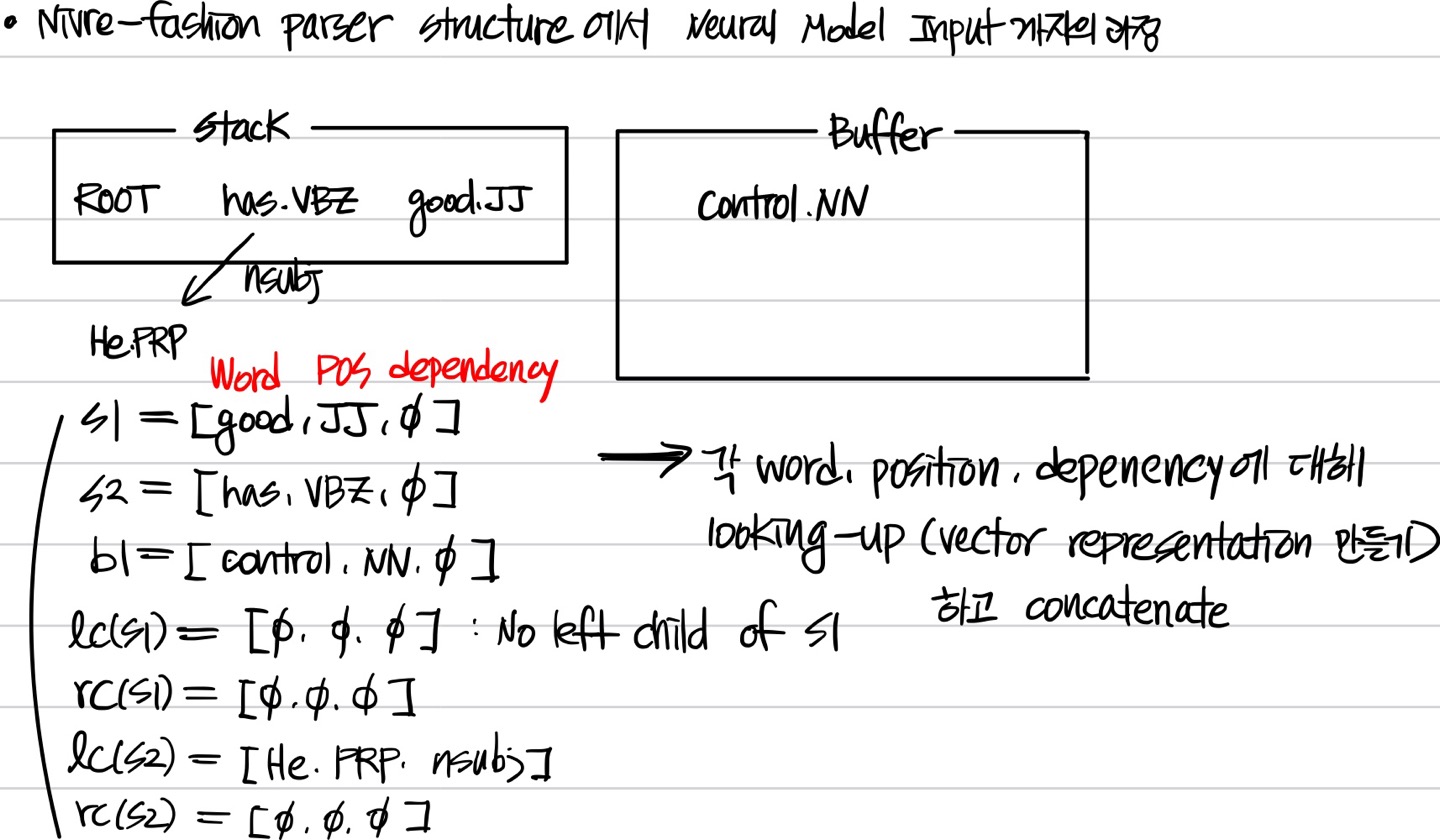 • Nivre-fashion parser structure에서 Neural Model Input 가져의 과정
Stack
Buffer
ROOT has.VBZ good.JJ
control.NN
nsubj
He.PRP
Word POS dependency
s1 = [good, JJ, ϕ]
s2 = [has, VBZ, ϕ]
b1 = [control. NN. ϕ]
lc(s1) = [ϕ. ϕ. ϕ] : No left child of s1
rc(s1) = [ϕ.ϕ.ϕ]
lc(s2) = [He. PRP. nsubj]
rc(s2) = [ϕ. ϕ. ϕ]
→ 각 word, position, depenency에 대해
looking-up (vector representation 만들기)
하고 concatenate